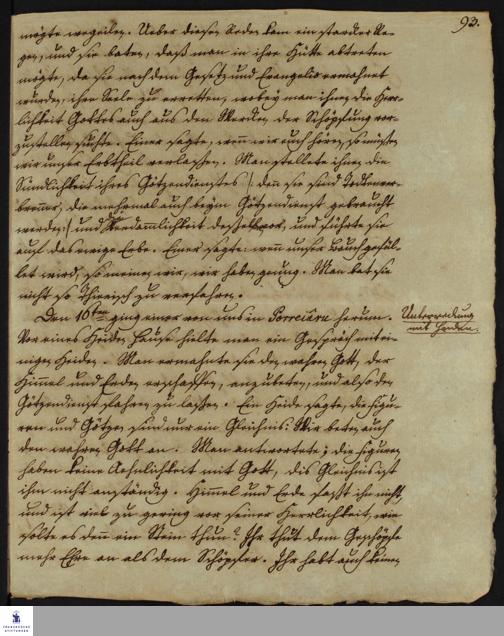 93.
mögte wegeilen. Ueber diesen Reden kam ein starcker Re-
gen, und sie baten, daß man in ihre Hütte abtreten
mögte, da sie nach dem Gesetz und Evangelio ermahnet
wurden, ihre Seele zu erretten, wobey man ihnen die Herr-
lichkeit Gottes auch aus den Wercken der Schöpfung vor-
zustellen suchte. Einer sagte, wenn wir euch hören, so müßen
wir unser Erbtheil verlassen. Man stellete ihnen die
Sündlichkeit ihres Götzendienstes /: denn sie sind Todtenver-
brenner, die mehrmal auch beym Götzendienst gebraucht
werden :/ und die Verdammlichkeit desselben vor, und führte sie
auf das ewige Erbe. Einer sagte: wenn unser Bauch gefül-
let wird, so meinen wir, wir haben genug. Man bat sie
nicht so Thierisch zu verfahren.
Den 10ten ging einer von uns in Perreiaru herum.
Unterredung
mit Heiden.
Vor eines Heiden Hause hielte man ein Gespräch mit ei-
nigen Heiden. Man ermahnte sie den wahren Gott, der
Himmel und Erden erschaffen, anzubeten, und also den
Götzendienst fahren zu lassen. Ein Heide sagte, die Figu-
ren und Götzen sind nur ein Gleichnis. Wir beten auch
den wahren Gott an. Man antwortete; die Figuren
haben keine Aehnlichkeit mit Gott, dis Gleichnis ist
ihm nicht anständig. Himmel und Erde fasst ihn nicht,
und ist viel zu gering vor seiner Herrlichkeit, wie
solte es denn ein Stein thun? Ihr thut dem Geschöpfe
mehr Ehre an als dem Schöpfer. Ihr habt auch keinen
FRANCKESCHE
STIFTUNGEN